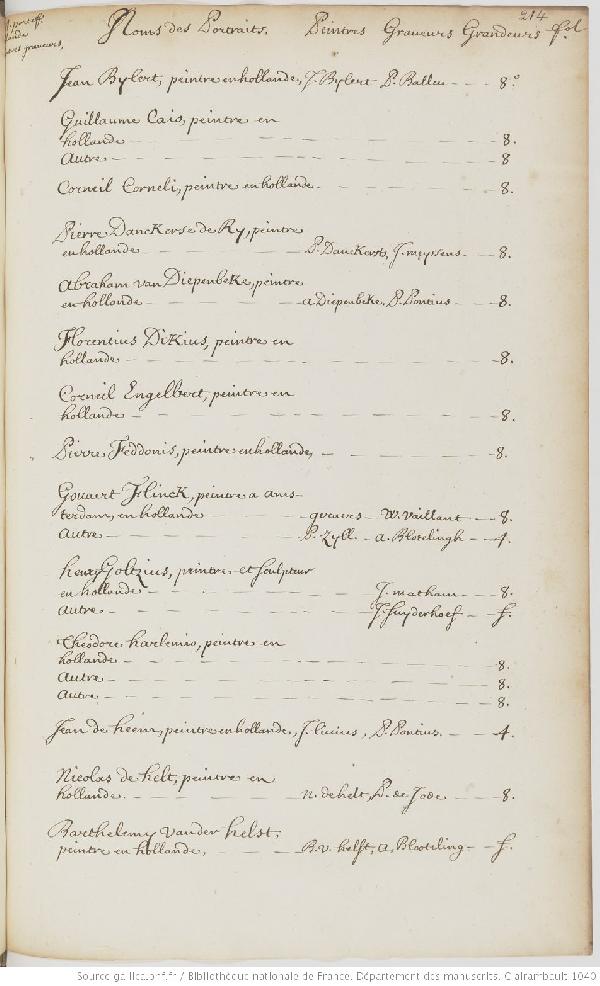 214
Noms des Portraits. Peintres Graveurs Grandeurs fol.
et graveurs,
Jean Bylert, peintre en hollande, J. Bylert P. Balleu 8.°
Guillaume Cais, peintre en
hollande 8.
Autre 8
Corneil Corneli, peintre en hollande. 8.
Pierre Danckerse de Ry, peintre
en hollande P. Danckerts, J. meyssens 8.
Abraham van Diepenbeke, peintre
en hollonde a Diepenbeke, P. Pontius 8.
Florentius Dikius, peintre en
hollande 8.
Corneil Engelbert, peintre en
hollande 8.
Pierre Feddonis, peintre en hollande, 8.
Govaert Flinck, peintre a ams-
terdam, en hollande W. Vaillant 8.
Autre P. Zyll. a. Blotelingh 4.
henry Goltzius, peintre et sculpteur
en hollande J. matham 8.
Autre J. suyderhoef f.
Theodore harlemio, peintre en
hollande 8.
Autre 8.
Autre 8.
Jean de heem, peintre en hollande, J. livius, P. Pontius. 4.
Nicolas de helt, peintre en
hollande. n. de helt, P. de Jode 8.
Barthelemy vander helst,
peintre en hollande, B. v. helst, a. Blooteling f.
Source gallica.bnf.fr / Bibliothèque nationale de France. Département des manuscrits. Clairambault 1040